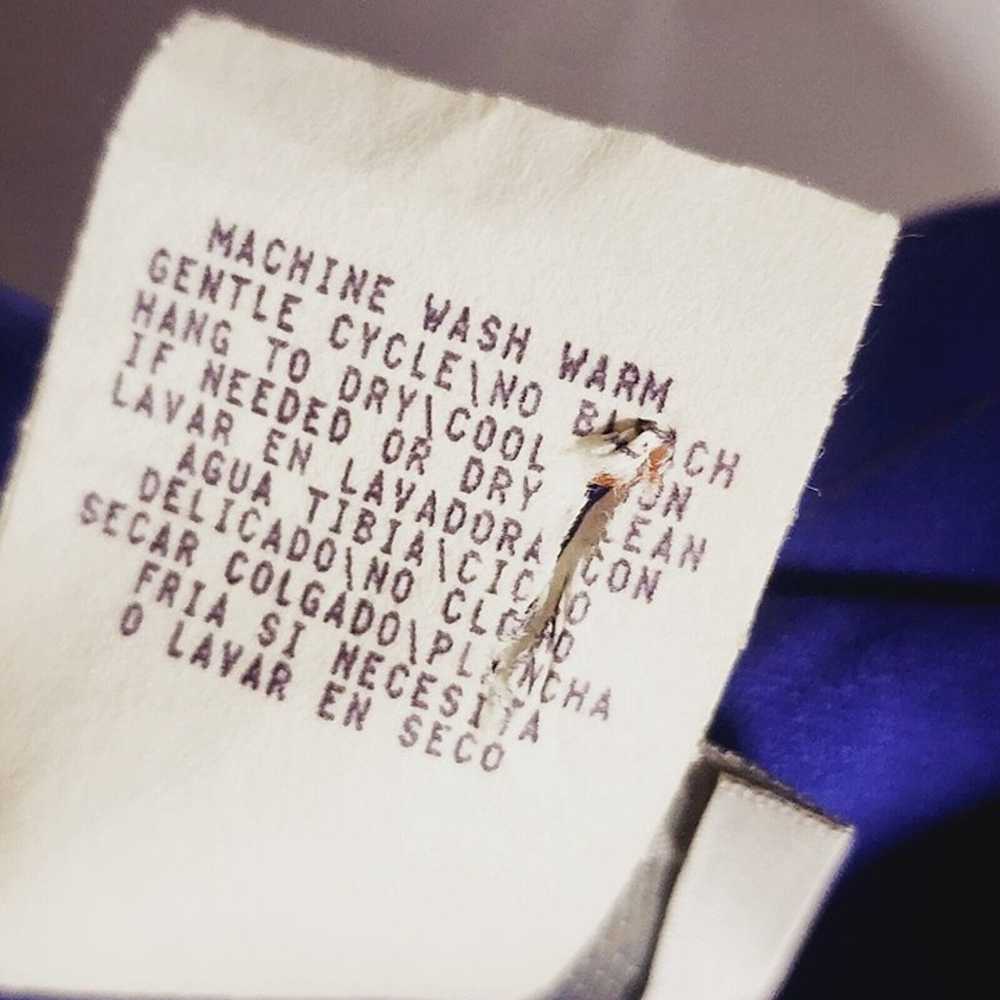 MACHINE WASH WARM
GENTLE CYCLE\NO BLEACH
HANG TO DRY\COOL
IF NEEDED OR DRY CLEAN
LAVAR EN LAVADORA CON
AGUA TIBIA\CICLO
DELICADO\NO CLORO
SECAR COLGADO\PLANCHA
FRIA SI NECESITA
O LAVAR EN SECO